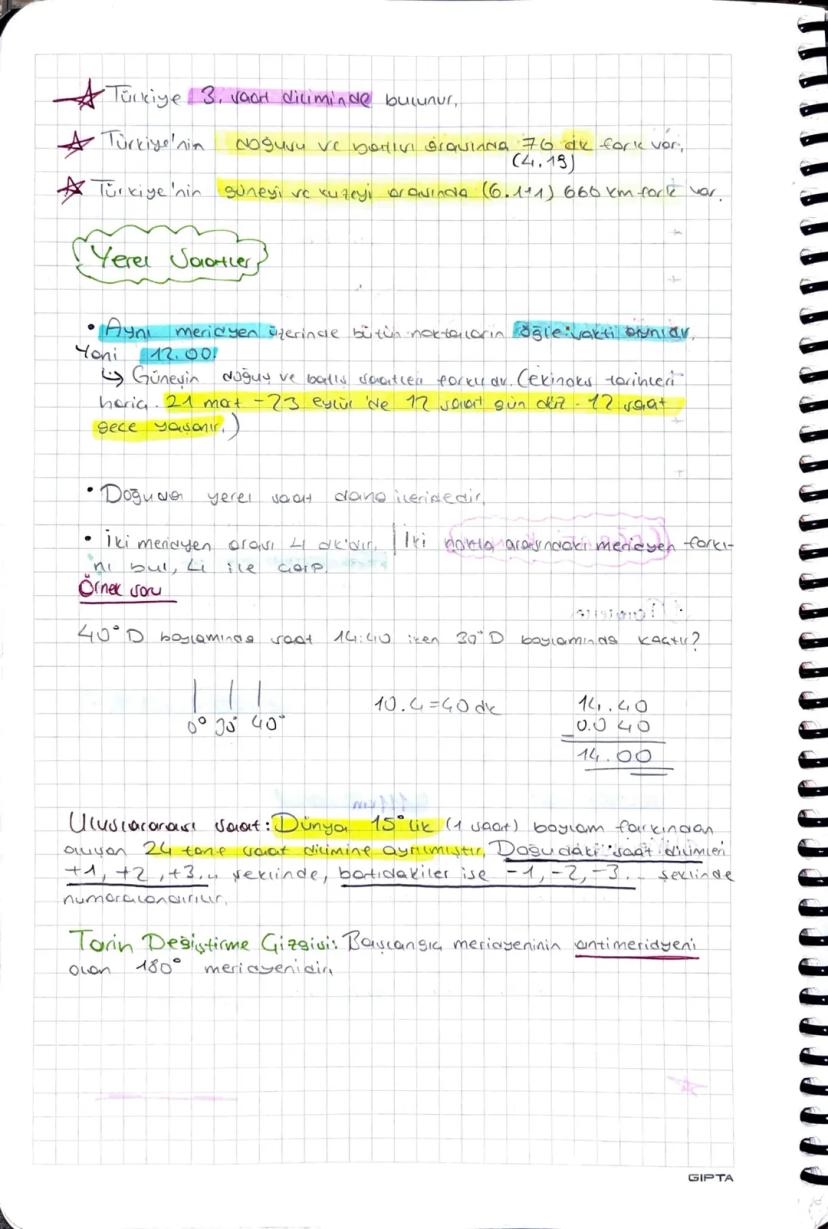 Türkiye 3. saat diliminde bulunur.
Türkiye'nin doğusu ve batısı arasında 76 dk fark var.
(4.19)
Türkiye'nin güneyi ve kuzeyi arasında (6.111) 666 km fark var.
Yerel Saatler
• Aynı meridyen üzerinde bütün noktaların öğle vakti aynıdır.
Yani 12.00!
↳ Güneşin doğuş ve batış saatleri farklıdır. (ekinoks tarihleri
hariç. 21 mart - 23 eylül'de 12 saat gündüz - 12 saat
gece yaşanır.)
• Doğuda yerel saat daha ileridedir.
• İki meridyen arası 4 dk'dır. | İki nokta arasındaki meridyen farkı-
nı bul, 4 ile çarp.
Örnek soru
40° D boylamında saat 14:40 iken 30° D boylamında kaçtır?
0° 30° 40°
10.4=40 dk
14.40
0.040
14.00
Uluslararası saat: Dünya 15°lik (1 saat) boylam farkından
oluşan 24 tane saat dilimine ayrılmıştır. Doğudaki saat dilimleri
+1, +2, +3.. şeklinde, batıdakiler ise -1, -2, -3... şeklinde
numaralandırılır.
Tarih Değiştirme Çizgisi: Başlangıç meridyeninin antimeridyeni
olan 180° meridyenidir.
GIPTA